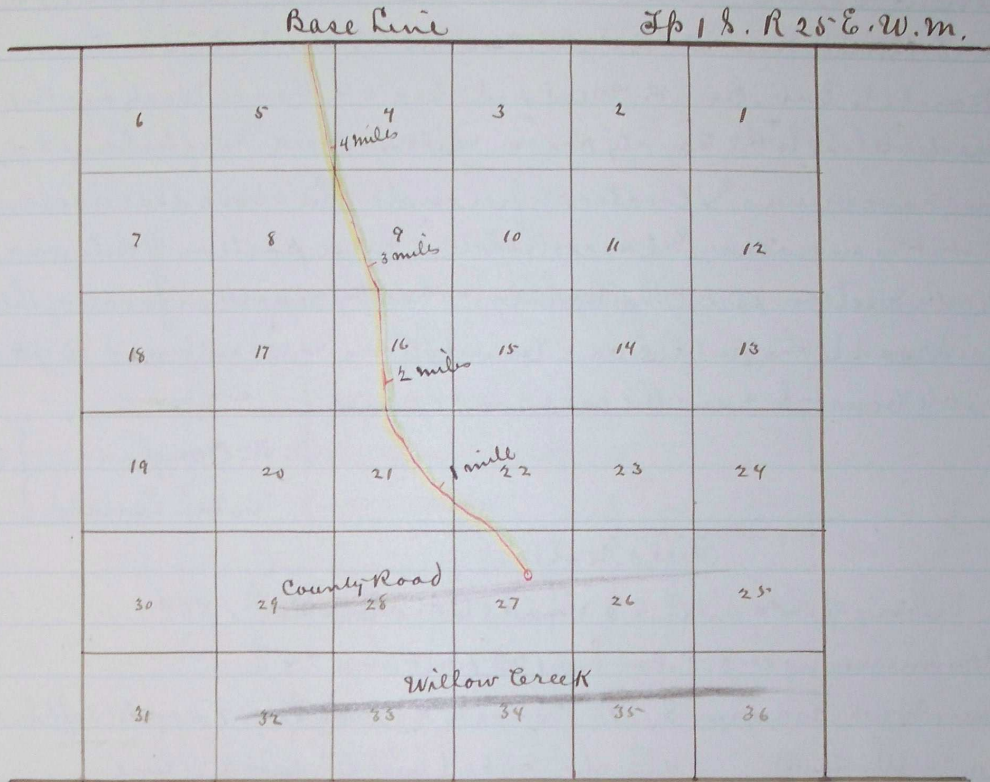 Base Line Tp 1 S. R 25 E. W. M.
6 5 4 3 2 1
4 miles
7 8 9 10 11 12
3 miles
18 17 16 15 14 13
2 miles
19 20 21 22 23 24
1 mile
County Road
30 29 28 27 26 25
Willow Creek
31 32 33 34 35 36